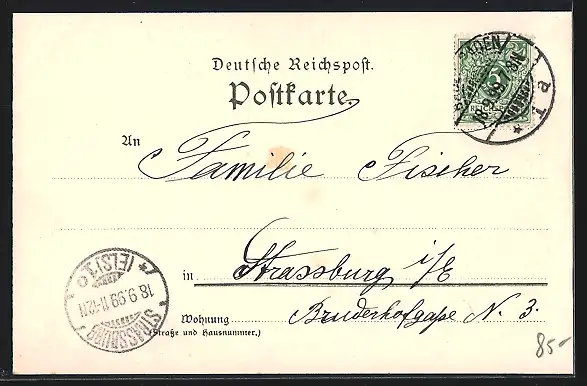 Deutsche Reichspost.
Postkarte.
An Familie Fischer
in Strassburg i/E
Wohnung Bruderhofgaße N. 3.
(Straße und Hausnummer.)
BADEN
18.9.99.7-8N.
STRASSBURG
18.9.99.11-12N
* (ELS) 1.o
85-